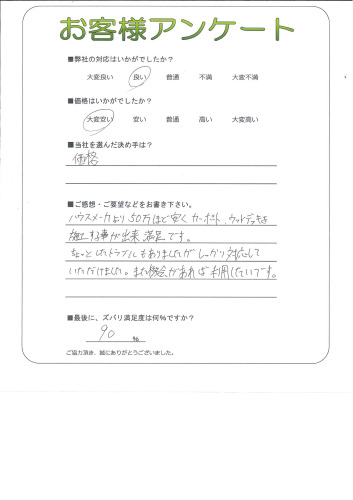 お客様アンケート
■弊社の対応はいかがでしたか？
大変良い 良い 普通 不満 大変不満
■価格はいかがでしたか？
大変安い 安い 普通 高い 大変高い
■当社を選んだ決め手は？
価格
■ご感想・ご要望などをお書き下さい。
ハウスメーカより50万ほど安くカーポート、ウッドデッキを
施工する事が出来満足です。
ちょっとしたトラブルもありましたがしっかり対応して
いただけました。また機会があれば利用したいです。
■最後に、ズバリ満足度は何%ですか？
90 %
ご協力頂き、誠にありがとうございました。